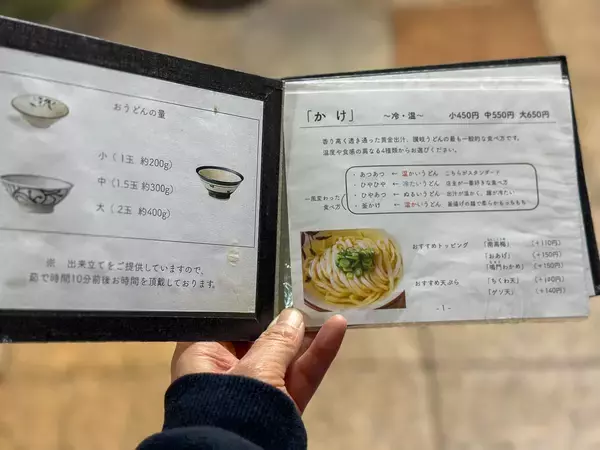 おうどんの量
小（1玉 約200g）
中（1.5玉 約300g）
大（2玉 約400g）
※ 出来立てをご提供していますので、
茹で時間10分前後お時間を頂戴しております。
「かけ」 ～冷・温～ 小450円 中550円 大650円
香り高く透き通った黄金出汁、讃岐うどんの最も一般的な食べ方です。
温度や食感の異なる4種類からお選びください。
・あつあつ ← 温かいうどん こちらがスタンダード
・ひやひや ← 冷たいうどん 店主が一番好きな食べ方
一風変わった食べ方
・ひやあつ ← ぬるいうどん 出汁が温かく、麺が冷たい
・釜かけ ← 温かいうどん 釜揚げの麺で柔らかもっちもち
おすすめトッピング 「南高梅」 （＋110円）
「おあげ」 （＋150円）
「鳴門わかめ」 （＋150円）
おすすめ天ぷら 「ちくわ天」
「ゲソ天」 （＋140円）
- 1 -